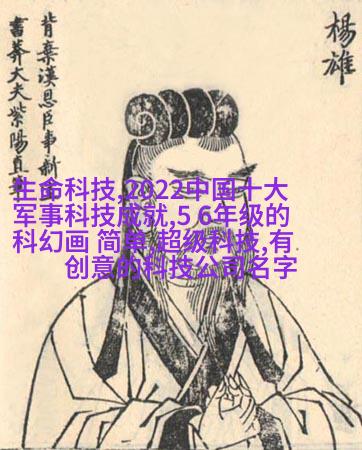 楊雄
背棄漢恩臣事新
書莽大夫紫陽直
生命科技,2022中国十大
军事科技成就,5 6年级的
科幻画 简单,超级科技,有
创意的科技公司名字